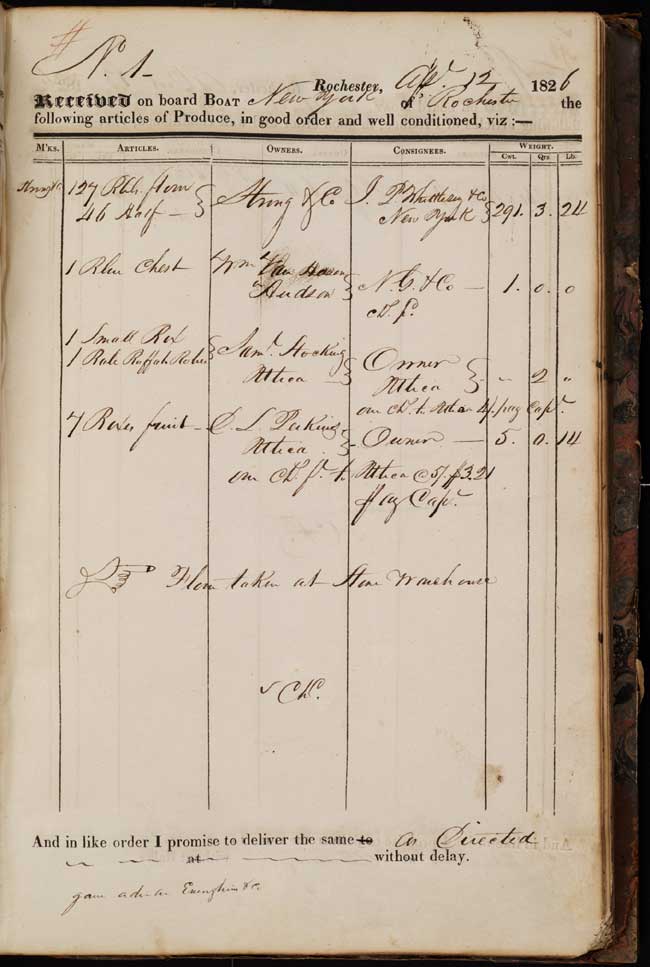 No 1
Rochester, Apl. 12 1826
Received on board BOAT New York of Rochester the
following articles of Produce, in good order and well conditioned, viz:—
M'KS. ARTICLES. OWNERS. CONSIGNEES. WEIGHT.
Cwt. Qrs. Lb.
127 Bbls. flour Strong & Co J. P. Whittlesey & Co
46 Half — New York 291. 3. 24
1 Blue Chest Wm Van
Hudson N. C. & Co — 1. 0. 0
Ch. pd.
1 Small Box Saml. Hocking Owner
1 Bale Buffalo Robes Attica — Attica " 2 "
on Ch. t. Attica pay Capt.
7 Boxes fruit — D. L. Perkins Owner — 5. 0. 14
Attica
on Ch. t. Attica @ 5/. $3.21
pay Capt.
Flour taken at Stone Warehouse
Ch.
And in like order I promise to deliver the same to as Directed
at without delay.
gave